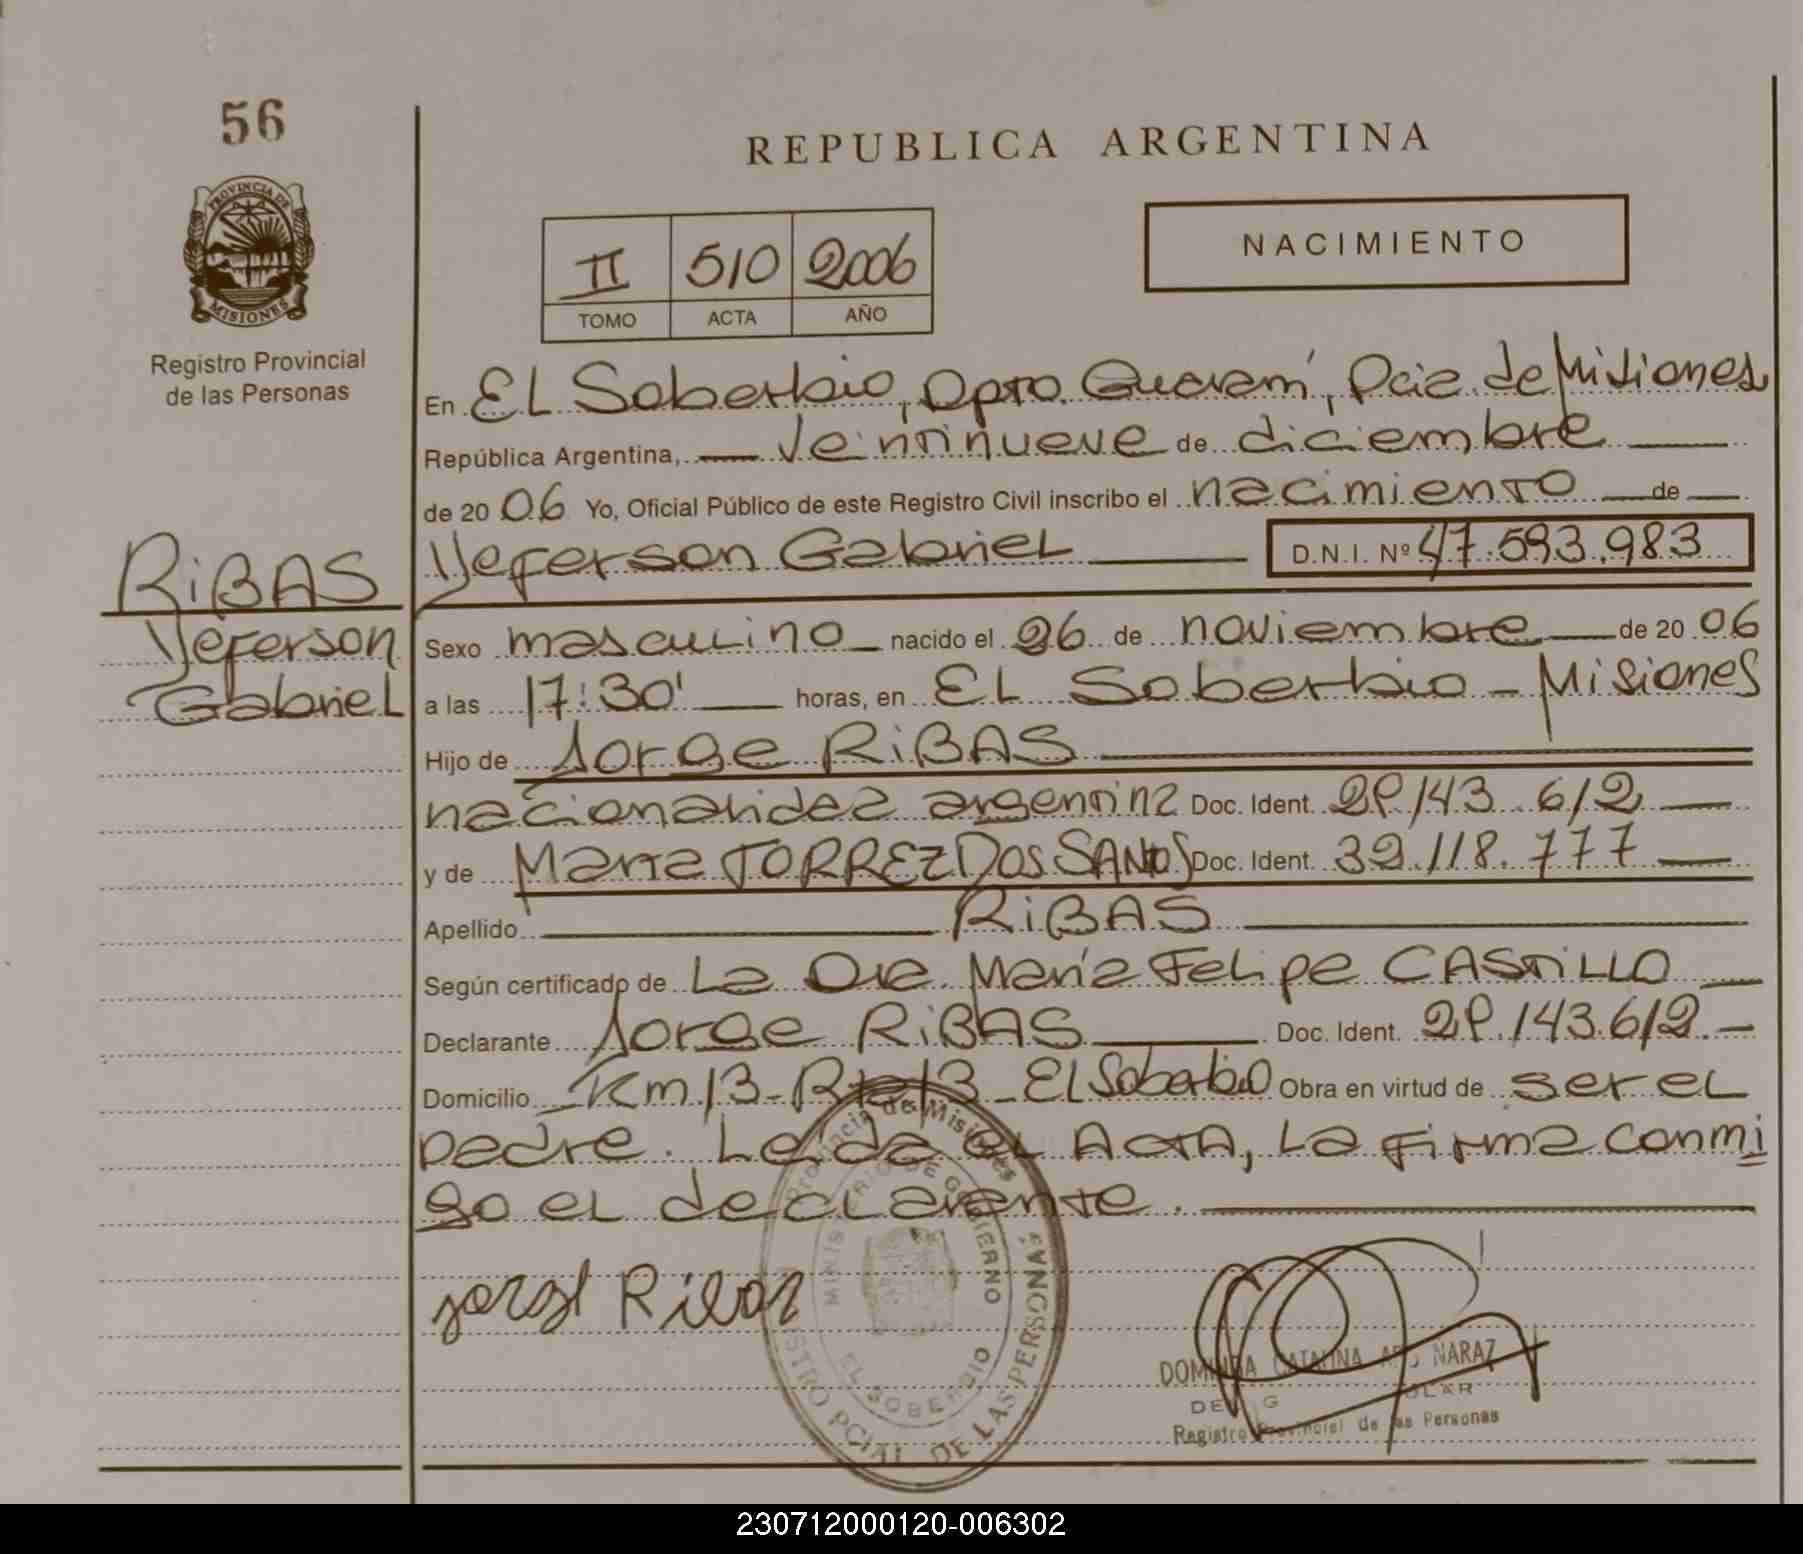 56
REPUBLICA ARGENTINA
PROVINCIA DE
MISIONES
Registro Provincial
de las Personas
II 510 2006
TOMO ACTA AÑO
NACIMIENTO
En EL Soberbio, Dpto. Guaraní, Pcia. de Misiones
República Argentina, veintinueve de diciembre
de 2006 Yo, Oficial Público de este Registro Civil inscribo el nacimiento de
RiBAS
Yeferson Gabriel D.N.I. Nº 47.593.983
Yeferson
Gabriel
Sexo masculino nacido el 26 de noviembre de 2006
a las 17:30' horas, en EL Soberbio - Misiones
Hijo de Jorge RiBAS
nacionalidad argentina Doc. Ident. 29.143.612
y de Maria TORREZ DOS SANTOS Doc. Ident. 32.118.777
Apellido RiBAS
Según certificado de La Dra. María Felipe CASTILLO
Declarante Jorge RiBAS Doc. Ident. 29.143.612.-
Domicilio Km 13 - Rta 13 - El Soberbio Obra en virtud de ser el
padre. Leida el Acta, La firma conmi
go el declarante.
Jorge Ribas
Provincia de Misiones
MINISTERIO DE GOBIERNO
EL SOBERBIO
REGISTRO PCIAL. DE LAS PERSONAS
CATALINA
Registro Provincial de las Personas
230712000120-006302